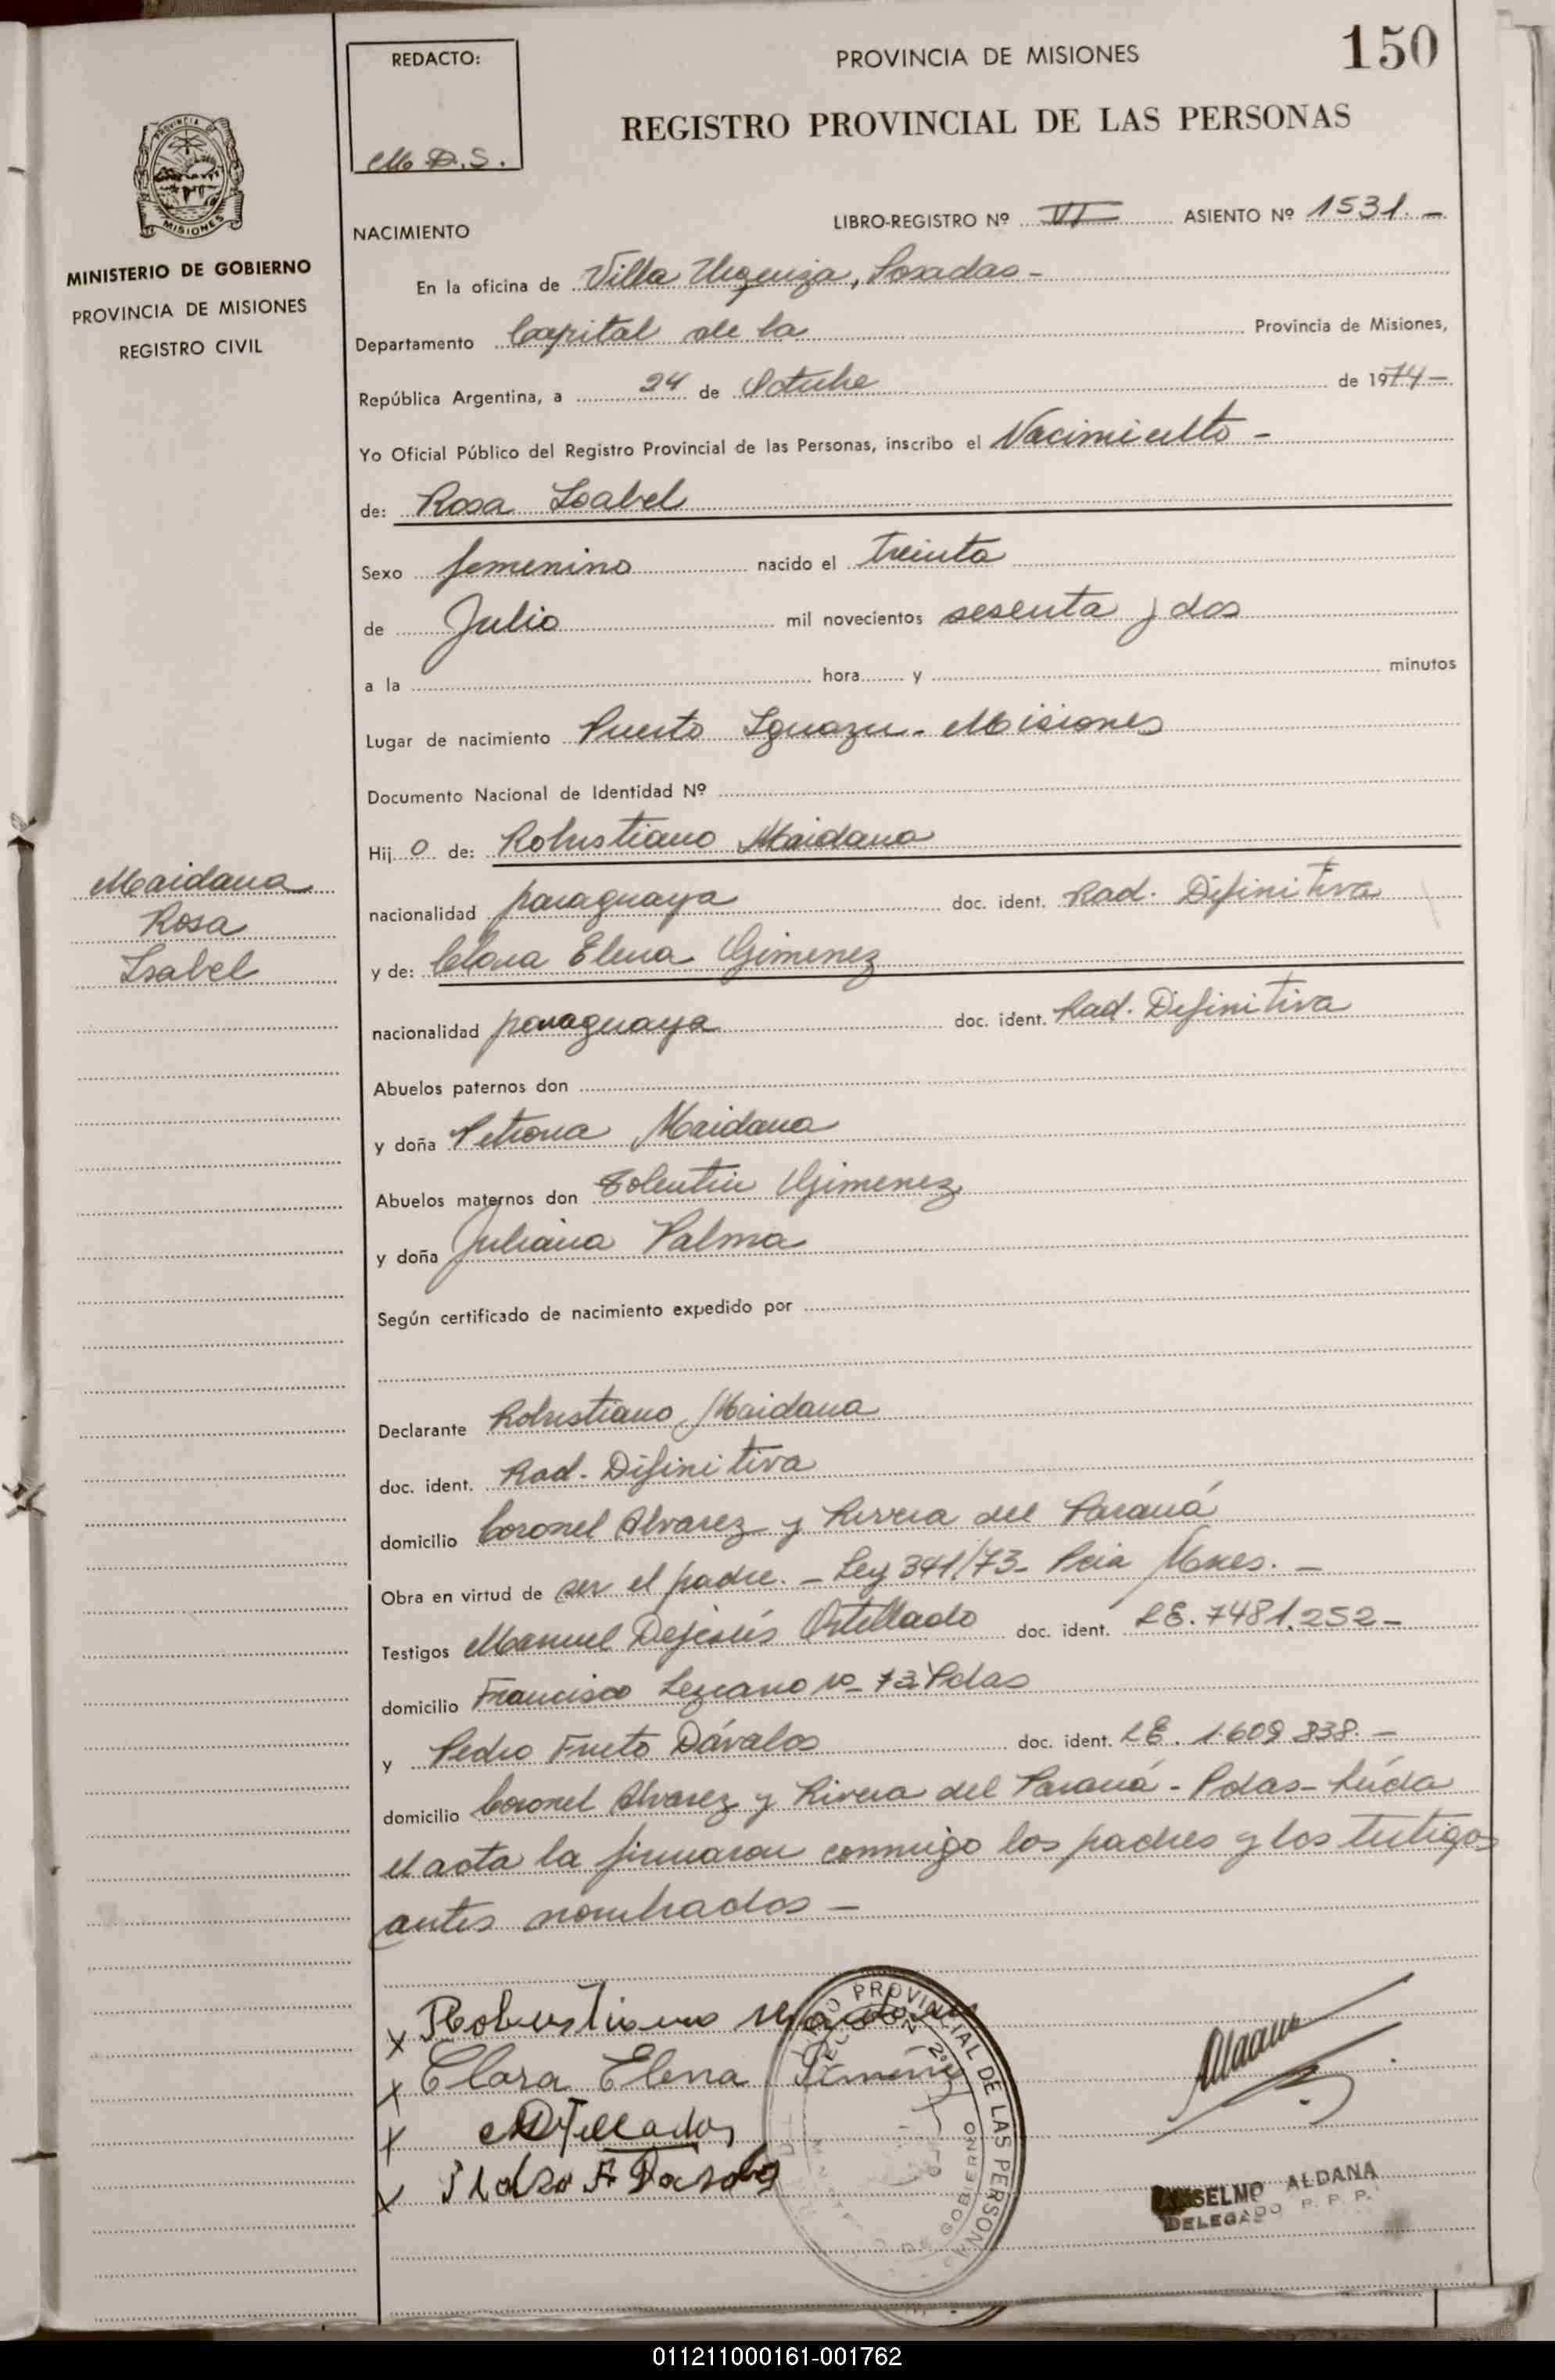 150
REDACTO:
M. D. S.
PROVINCIA DE MISIONES
REGISTRO PROVINCIAL DE LAS PERSONAS
PROVINCIA DE
MISIONES
MINISTERIO DE GOBIERNO
PROVINCIA DE MISIONES
REGISTRO CIVIL
NACIMIENTO
LIBRO-REGISTRO Nº VI ASIENTO Nº 1531.-
En la oficina de Villa Urquiza, Posadas-
Departamento Capital de la Provincia de Misiones,
República Argentina, a 24 de Octubre de 1974-
Yo Oficial Público del Registro Provincial de las Personas, inscribo el Nacimiento-
de: Rosa Isabel
Sexo femenino nacido el treinta
de Julio mil novecientos sesenta y dos
a la hora y minutos
Lugar de nacimiento Puerto Iguazu - Misiones
Documento Nacional de Identidad Nº
Hij o de: Robustiano Maidana
Maidana
Rosa
Isabel
nacionalidad paraguaya doc. ident. Rad. Difinitiva
y de: Clara Elena Gimenez
nacionalidad paraguaya doc. ident. Rad. Difinitiva
Abuelos paternos don
y doña Petrona Maidana
Abuelos maternos don Tolentin Gimenez
y doña Juliana Palma
Según certificado de nacimiento expedido por
Declarante Robustiano Maidana
doc. ident. Rad. Difinitiva
domicilio Coronel Alvarez y Rivera del Paraná
Obra en virtud de ser el padre. - Ley 341/73- Pcia Mnes. -
Testigos Manuel Dejesús Ortellado doc. ident. LE. 7481.252-
domicilio Francisco Lezcano nº 73 Pdas
y Pedro Fneto Dávalos doc. ident. LE. 1.609.838. -
domicilio Coronel Alvarez y Rivera del Paraná - Pdas - Leída
el acta la firmaron conmigo los padres y los testigos
antes nombrados -
x Robustiano Maidana
x Clara Elena Jimenez
x
x
PROVINCIAL DE LAS PERSONAS
DE GOBIERNO
ANSELMO ALDANA
DELEGADO R. P. P.
011211000161-001762